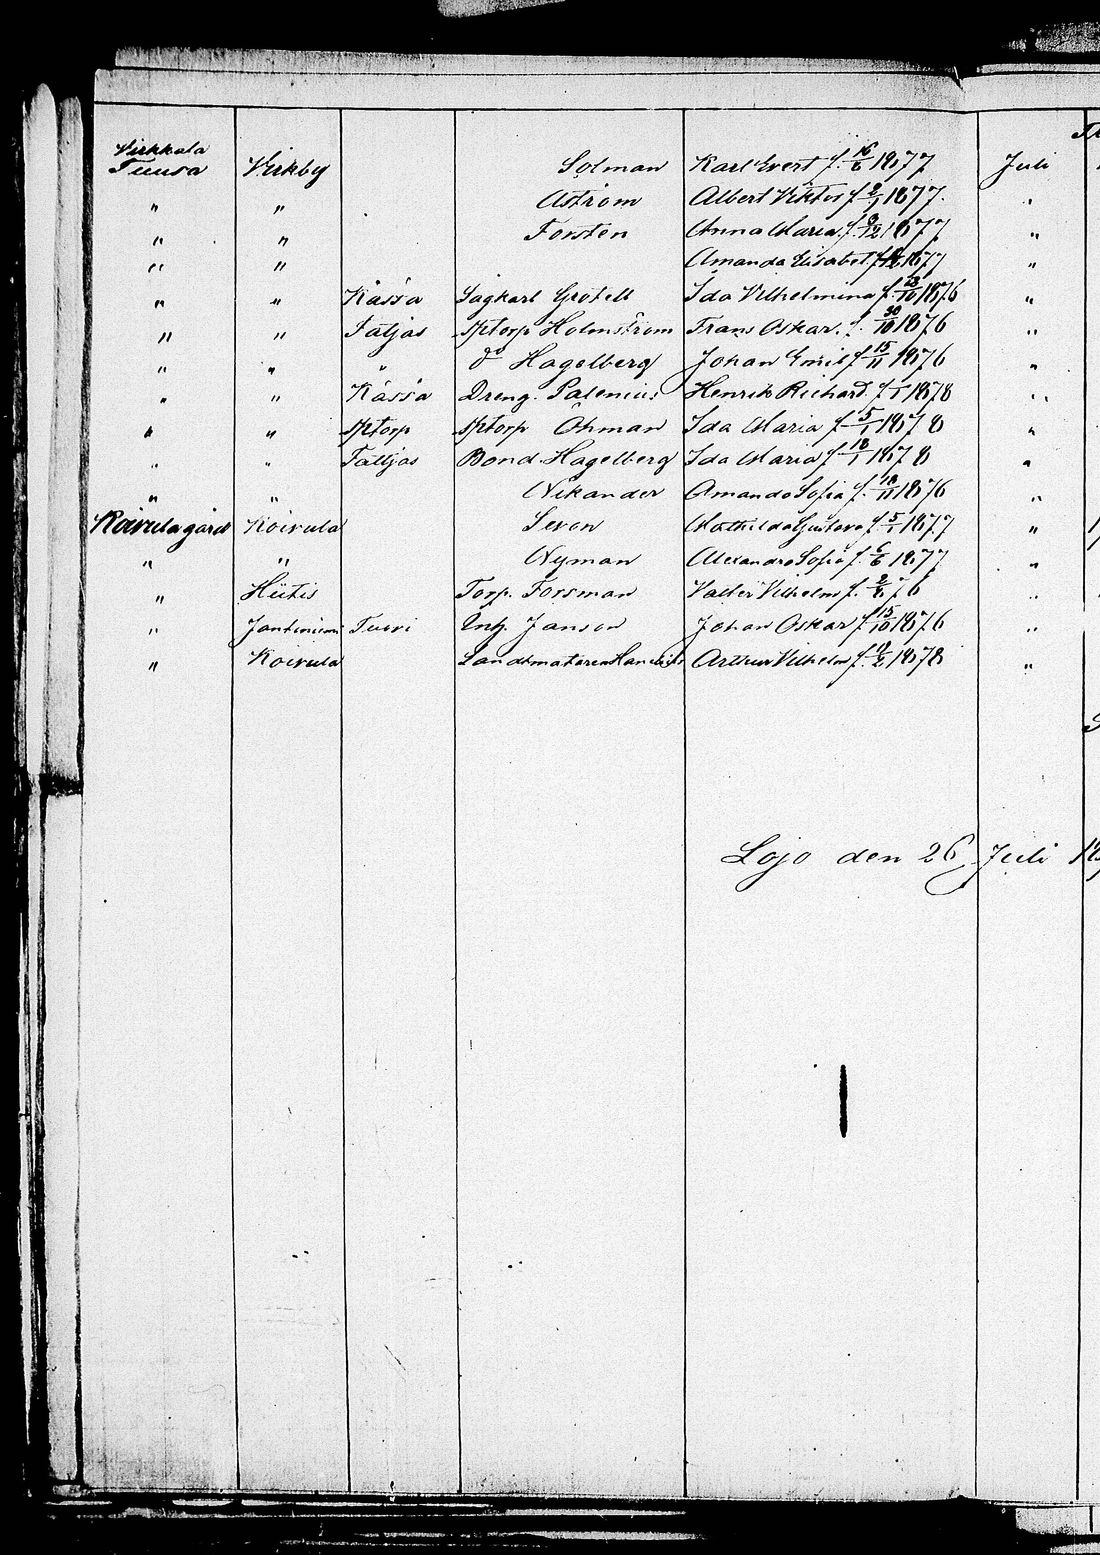 Virkkala
Tuusa Virkby Solman Karl Evert f. 16/6 1877 Juli
" " Åström Albert Viktor f. 2/1 1877. "
" " Forstén Anna Maria f. 3/12 1877 "
" " Amanda Elisabet f. 1877 "
" " Kassa Sagkarl Grotell Ida Vilhelmina f. 23/10 1876 "
" " Taljas Sptorp Holmström Frans Oskar f. 30/10 1876 "
" " " do Hagelberg Johan Emil f. 15/11 1876 "
" " Kassa Dreng. Palenius Henrik Richard f. 1878 "
" " Sptorp Sptorp Öhman Ida Maria f. 5/1 1878 "
" " Talljas Bond. Hagelberg Ida Maria f. 18/1 1878 "
" " Nikander Amanda Sofia f. 18/11 1876 "
Koivula gård Koivula Seven Mathilda Gustava f. 5/1 1877 "
" " Nyman Alexandra Sofia f. 6/6 1877 "
" Hiitis Torp. Forsman Valter Vilhelm f. 2/6 76 "
" Jantoniemi Tuovi Inh. Janson Johan Oskar f. 15/10 1876 "
" Koivula Landtmätaren Arthur Vilhelm f. 1878 "
Lojo den 26 Juli